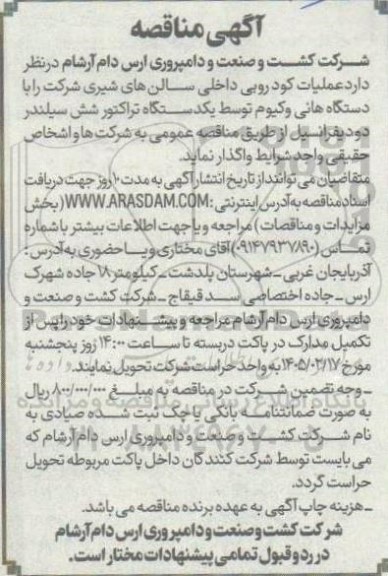 آگهی مناقصه
شرکت کشت و صنعت و دامپروری ارس دام آرشام در نظر
دارد عملیات کود روبی داخلی سالن های شیری شرکت را با
دستگاه هانی وکیوم توسط یکدستگاه تراکتور شش سیلندر
دو دیفرانسیل از طریق مناقصه عمومی به شرکت ها و اشخاص
حقیقی واجد شرایط واگذار نماید.
متقاضیان می توانند از تاریخ انتشار آگهی به مدت ۱۰ روز جهت دریافت
اسناد مناقصه به آدرس اینترنتی : WWW.ARASDAM.COM ( بخش
مزایدات و مناقصات ) مراجعه و یا جهت اطلاعات بیشتر با شماره
تماس (۰۹۱۴۷۹۳۷۸۹۰) آقای مختاری و یا حضوری به آدرس :
آذربایجان غربی ـ شهرستان پلدشت ـ کیلومتر ۱۸ جاده شهرک
ارس ـ جاده اختصاصی سد قیقاج ـ شرکت کشت و صنعت و
دامپروری ارس دام آرشام مراجعه و پیشنهادات خود را پس از
تکمیل مدارک در پاکت دربسته تا ساعت ۱۴:۰۰ روز پنجشنبه
مورخ ۱۴۰۵/۰۳/۱۷ به واحد حراست شرکت تحویل نمایند.
ـ وجه تضمین شرکت در مناقصه به مبلغ ۸۰۰/۰۰۰/۰۰۰ ریال
به صورت ضمانتنامه بانکی یا چک ثبت شده صیادی به
نام شرکت کشت و صنعت و دامپروری ارس دام آرشام که
می بایست توسط شرکت کنندگان داخل پاکت مربوطه تحویل
حراست گردد.
ـ هزینه چاپ آگهی به عهده برنده مناقصه می باشد.
شرکت کشت و صنعت و دامپروری ارس دام آرشام
در رد و قبول تمامی پیشنهادات مختار است.